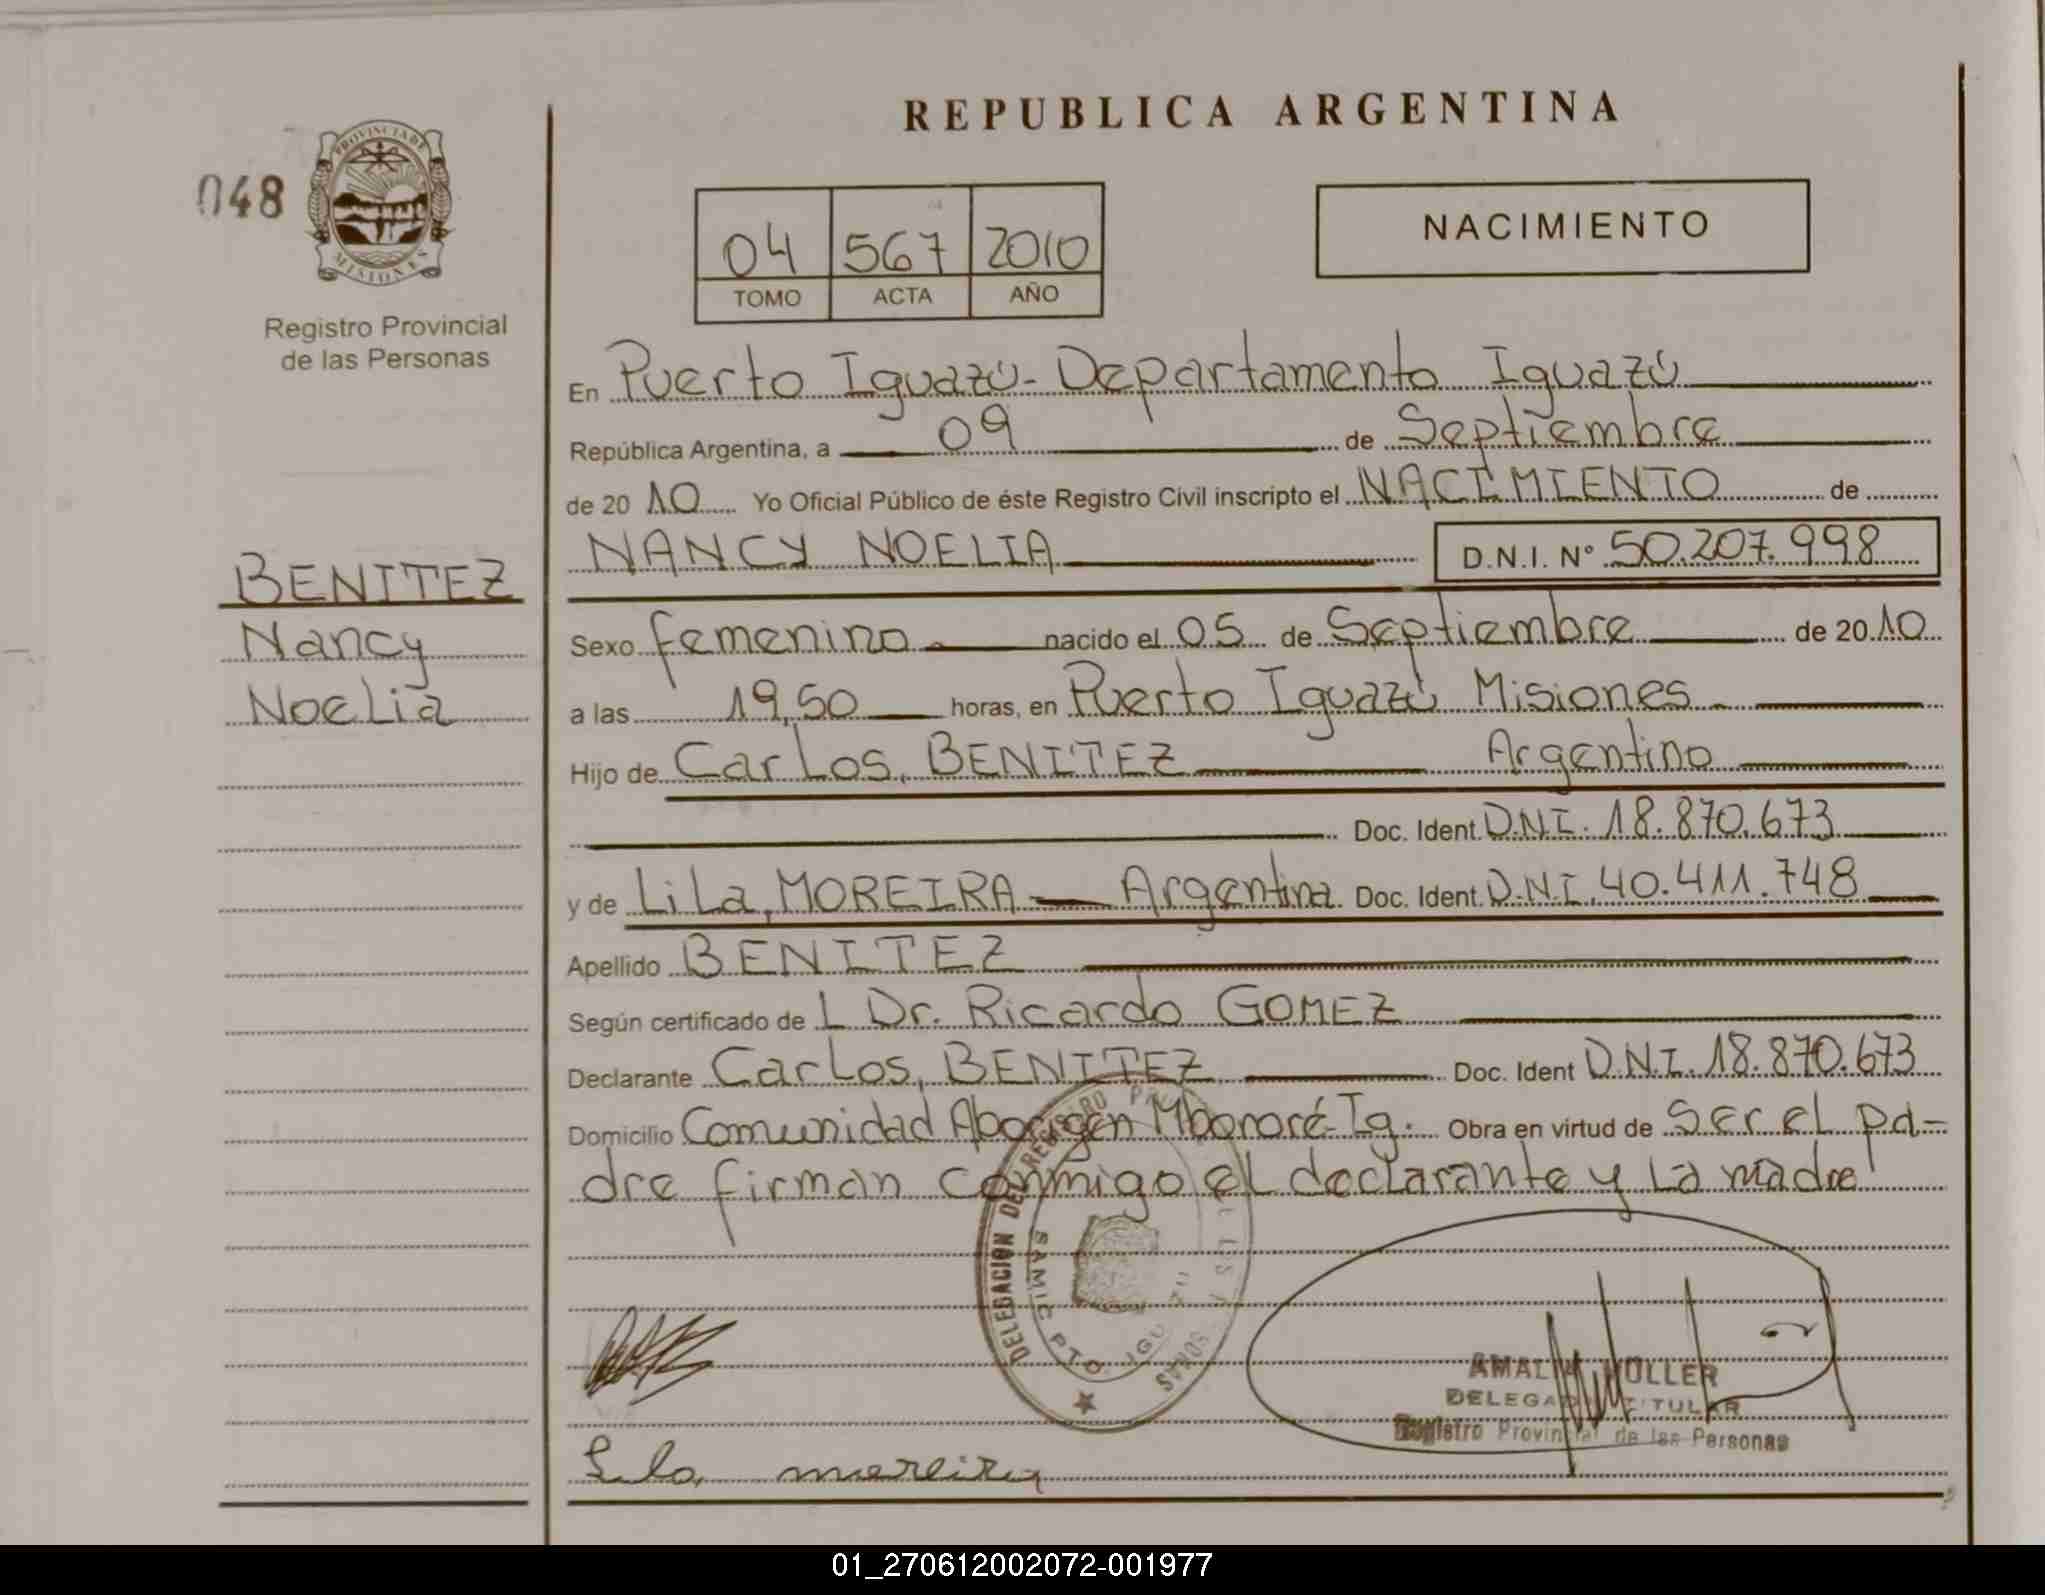 REPUBLICA ARGENTINA
048
PROVINCIA DE MISIONES
Registro Provincial
de las Personas
04 567 2010
TOMO ACTA AÑO
NACIMIENTO
En Puerto Iguazú - Departamento Iguazú
República Argentina, a 09 de Septiembre
de 20 10 Yo Oficial Público de éste Registro Civil inscripto el NACIMIENTO de
BENITEZ
Nancy
Noelia
NANCY NOELIA D.N.I. Nº 50.207.998
Sexo femenino nacido el 05 de Septiembre de 20 10
a las 19,50 horas, en Puerto Iguazú Misiones
Hijo de Carlos, BENITEZ Argentino
Doc. Ident. D.N.I. 18.870.673
y de Lila, MOREIRA Argentina Doc. Ident. D.N.I. 40.411.748
Apellido BENITEZ
Según certificado de L Dr. Ricardo GOMEZ
Declarante Carlos, BENITEZ Doc. Ident D.N.I. 18.870.673
Domicilio Comunidad Aborigen Mbororé-Ig. Obra en virtud de Ser el pa-
dre firman conmigo el declarante y la madre
DELEGACION DEL REGISTRO
SAMIC PTO. IGUAZU
AMALIA MULLER
DELEGADA TITULAR
Registro Provincial de las Personas
Lila moreira
01_270612002072-001977